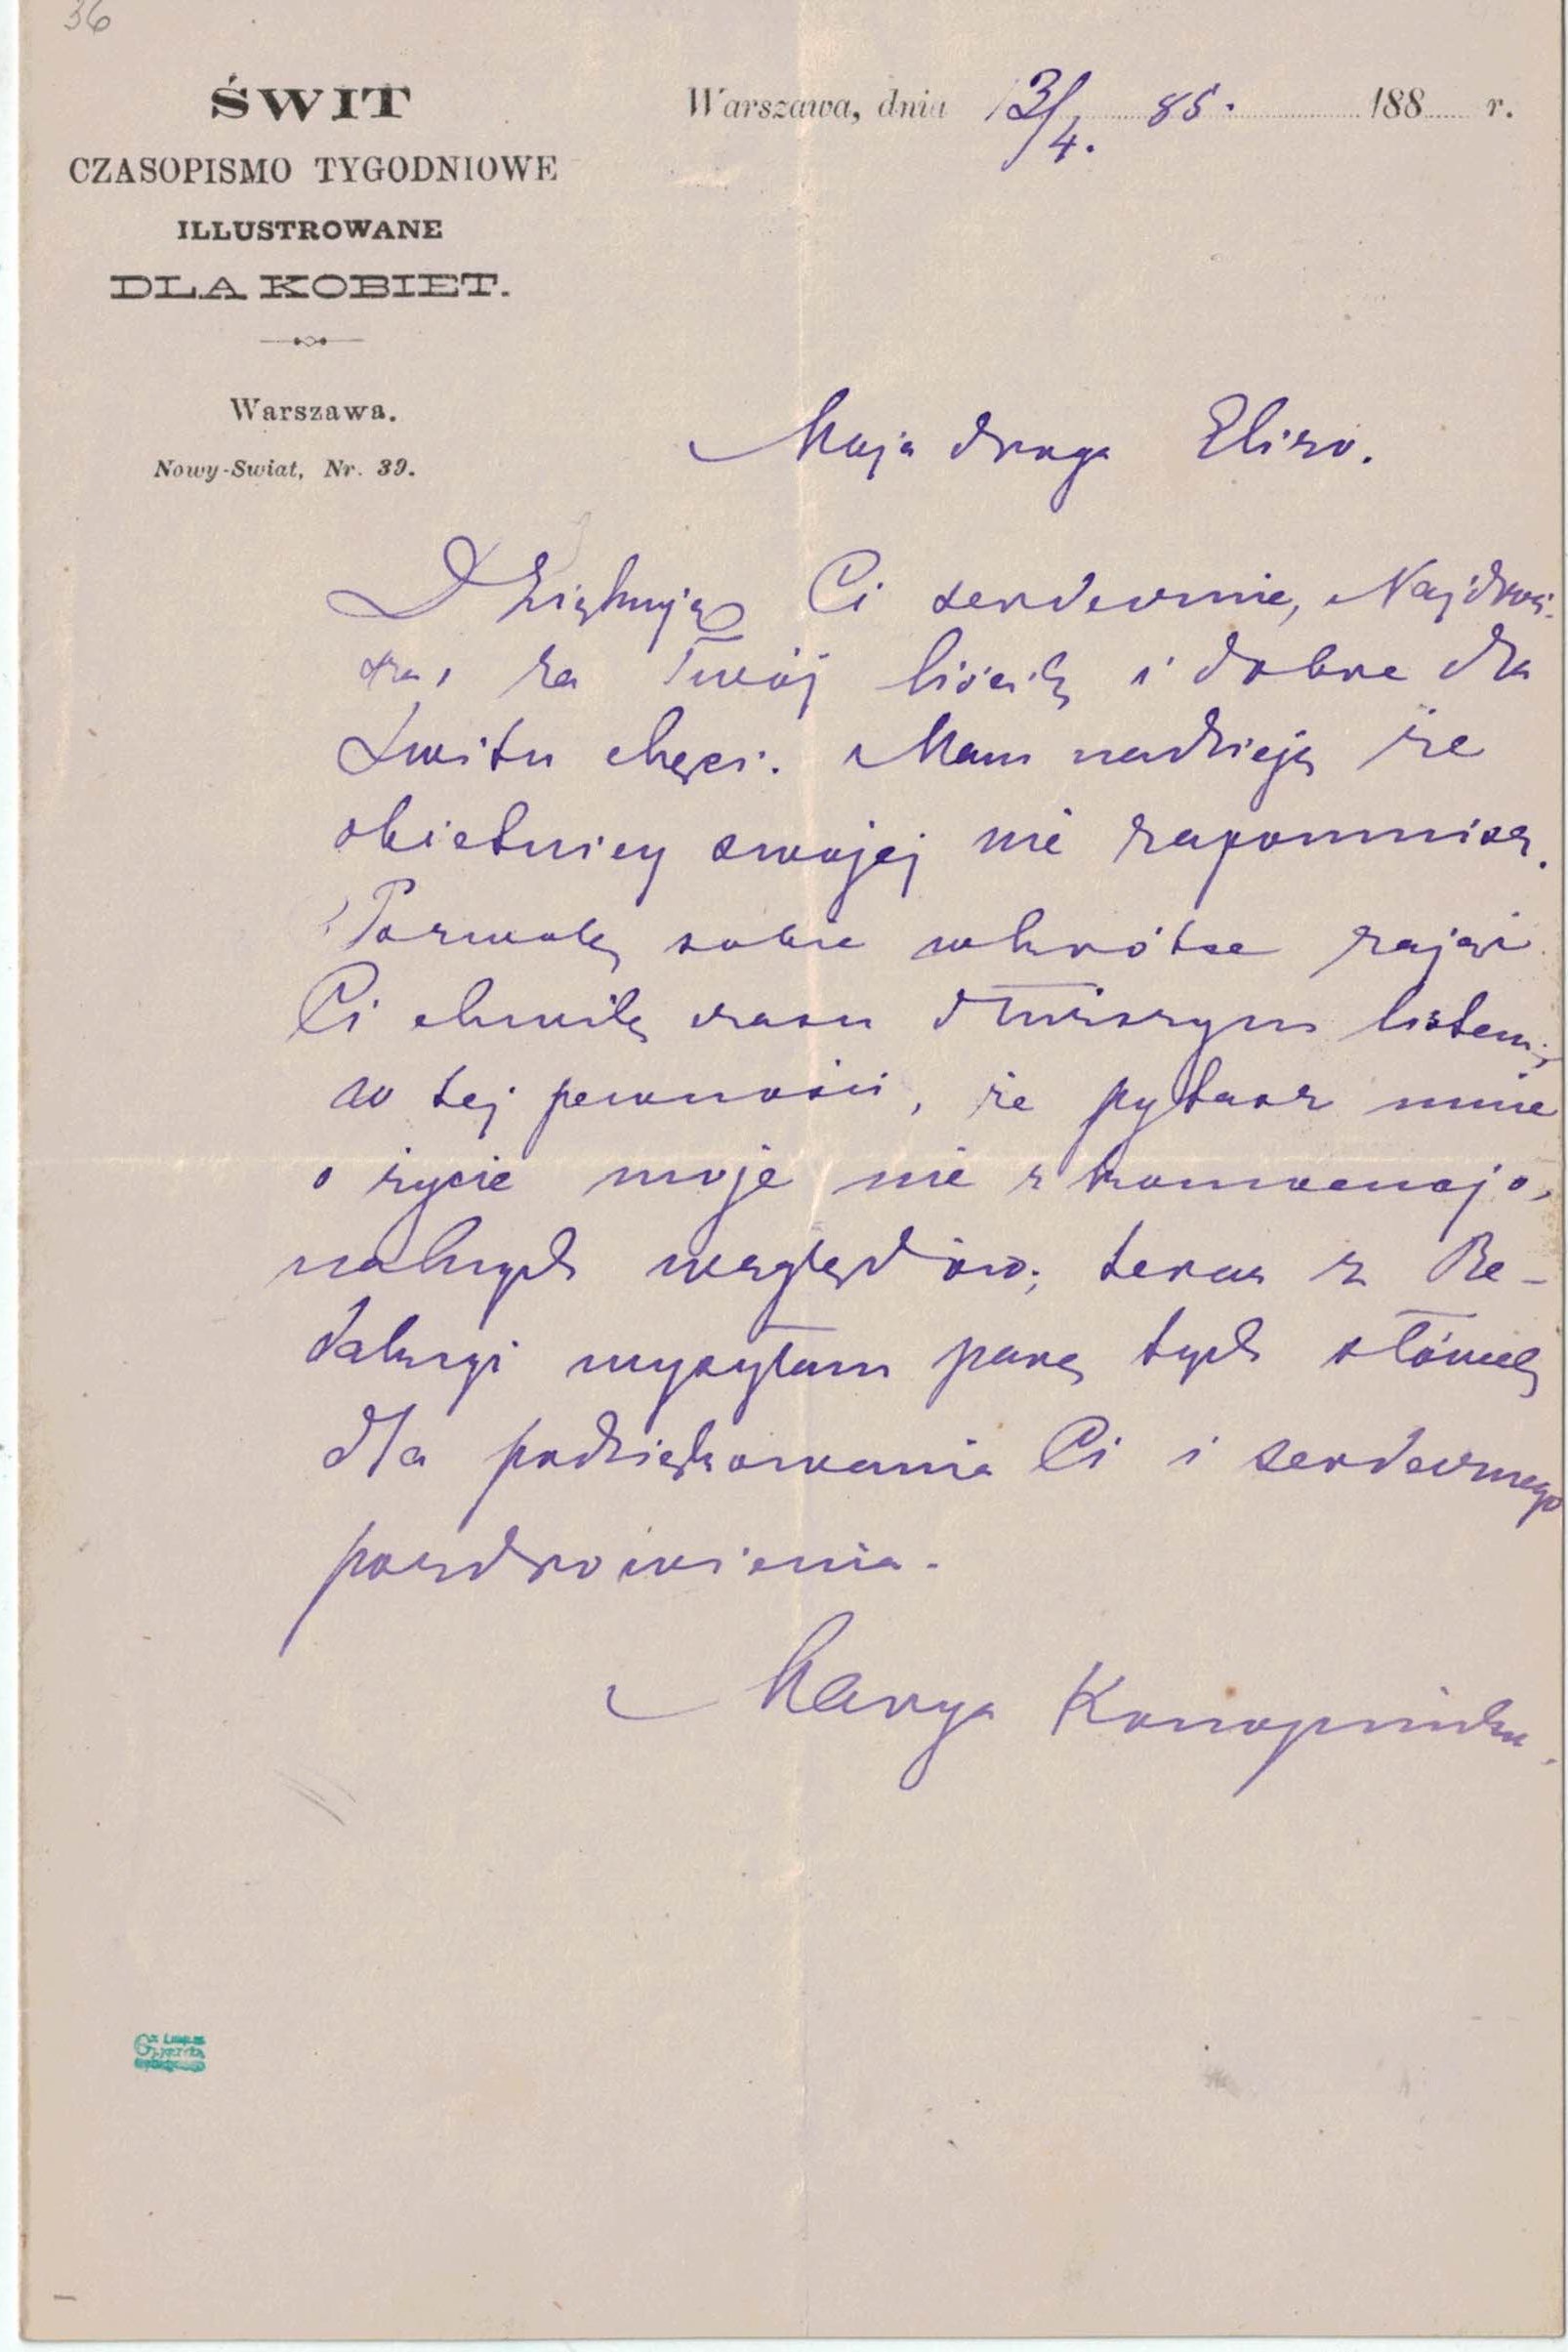 36
ŚWIT
CZASOPISMO TYGODNIOWE
ILLUSTROWANE
DLA KOBIET.
Warszawa.
Nowy-Swiat, Nr. 39.
Warszawa, dnia 13/4. 85. 188 r.
Moja droga Elizo.
Dziękuję Ci serdecznie, Najdroż-
sza, za Twój liścik i dobre dla
Świtu chęci. Mam nadzieję że
obietnicy swojej nie zapomnisz.
Pozwolę sobie wkrótce zająć
Ci chwilę czasu dłuższym listem,
w tej pewności, że pytasz mnie
o życie moje nie z konwencjo-
nalnych względów; teraz z Re-
dakcyi wysyłam parę tych słówek
dla podziękowania Ci i serdecznego
pozdrowienia.
Marya Konopnicka.